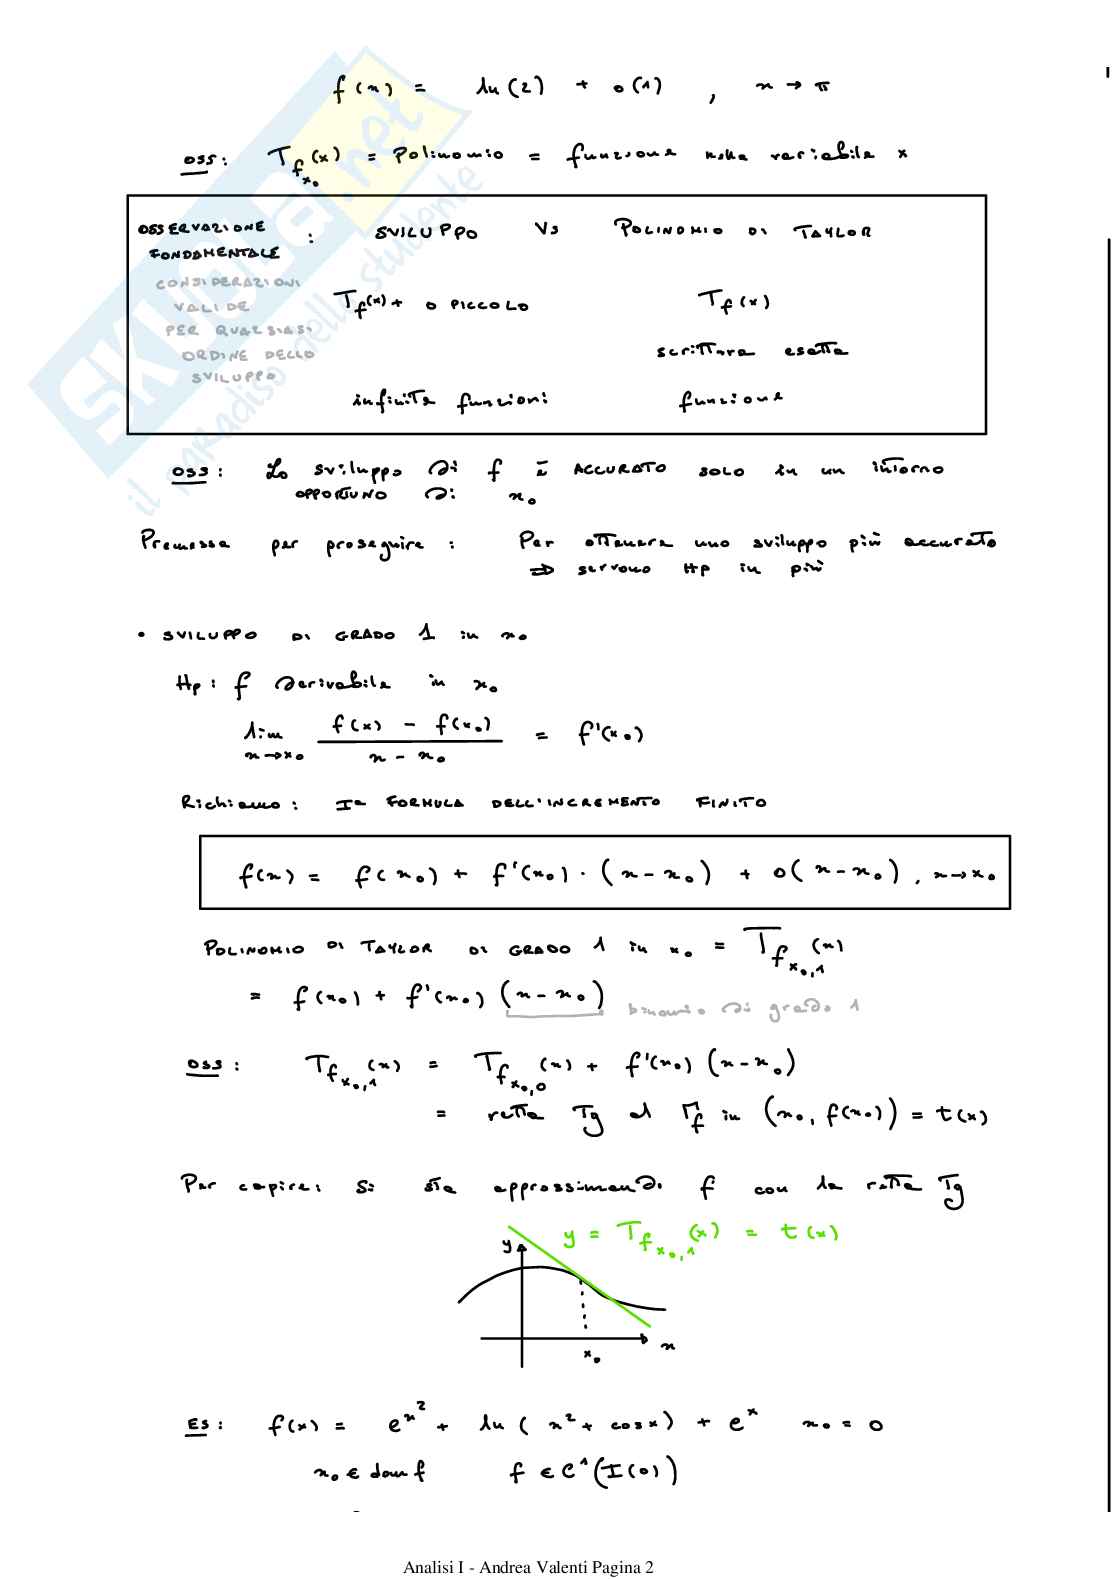 f(x) = ln(2) + o(1) , x → π
oss: T_{f_{x_0}}(x) = Polinomio = funzione nella variabile x
OSSERVAZIONE FONDAMENTALE : SVILUPPO Vs POLINOMIO DI TAYLOR
CONSIDERAZIONI VALIDE PER QUALSIASI ORDINE DELLO SVILUPPO
T_f(x) + o PICCOLO T_f(x)
scrittura esatta
infinite funzioni funzione
oss: Lo sviluppo di f è ACCURATO SOLO in un intorno
OPPORTUNO di x_0
Premessa per proseguire : Per ottenere uno sviluppo più accurato
⇒ servono Hp in più
• SVILUPPO DI GRADO 1 in x_0
Hp: f derivabile in x_0
lim_{x→x_0} (f(x) - f(x_0)) / (x - x_0) = f'(x_0)
Richiamo: Iª FORMULA DELL'INCREMENTO FINITO
f(x) = f(x_0) + f'(x_0) · (x - x_0) + o(x - x_0), x→x_0
POLINOMIO DI TAYLOR DI GRADO 1 in x_0 = T_{f_{x_0,1}}(x)
= f(x_0) + f'(x_0) (x - x_0) binomio di grado 1
oss: T_{f_{x_0,1}}(x) = T_{f_{x_0,0}}(x) + f'(x_0) (x - x_0)
= retta Tg al Γ_f in (x_0, f(x_0)) = t(x)
Per capire: Si sta approssimando f con la retta Tg
y = T_{f_{x_0,1}}(x) = t(x)
y
x
x_0
Es: f(x) = e^{x^2} + ln(x^2 + cosx) + e^x x_0 = 0
x_0 ∈ dom f f ∈ C^1(I(0))
Analisi I - Andrea Valenti Pagina 2
SKUOLA.net
il paradiso dello studente